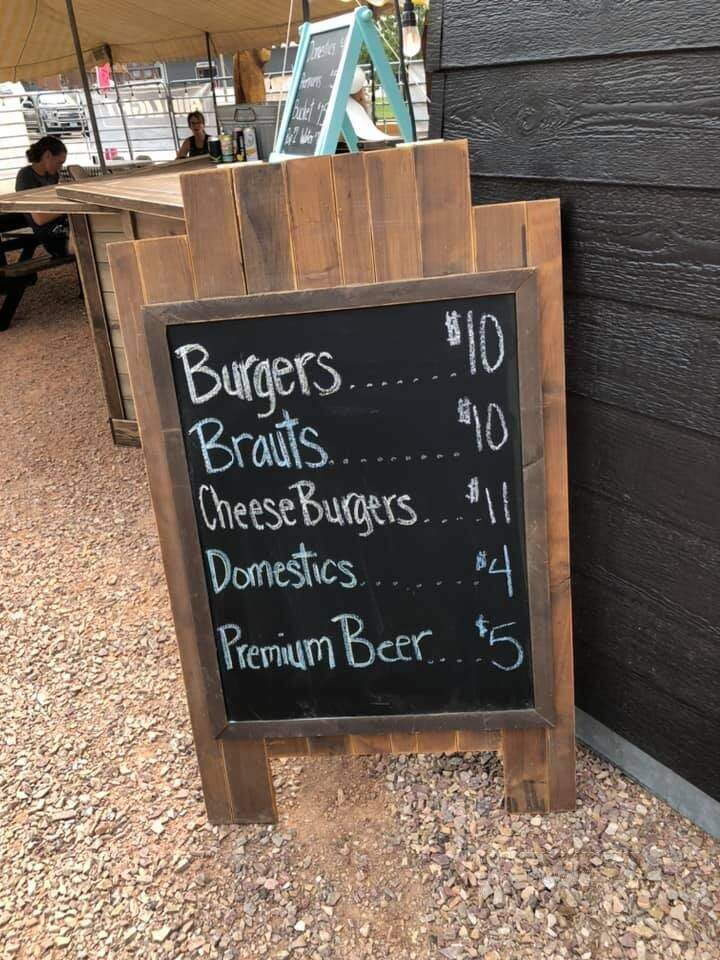 Domestics
Premiums
Bucket
Burgers......... $10
Brauts......... $10
CheeseBurgers.... $11
Domestics....... $4
Premium Beer..... $5